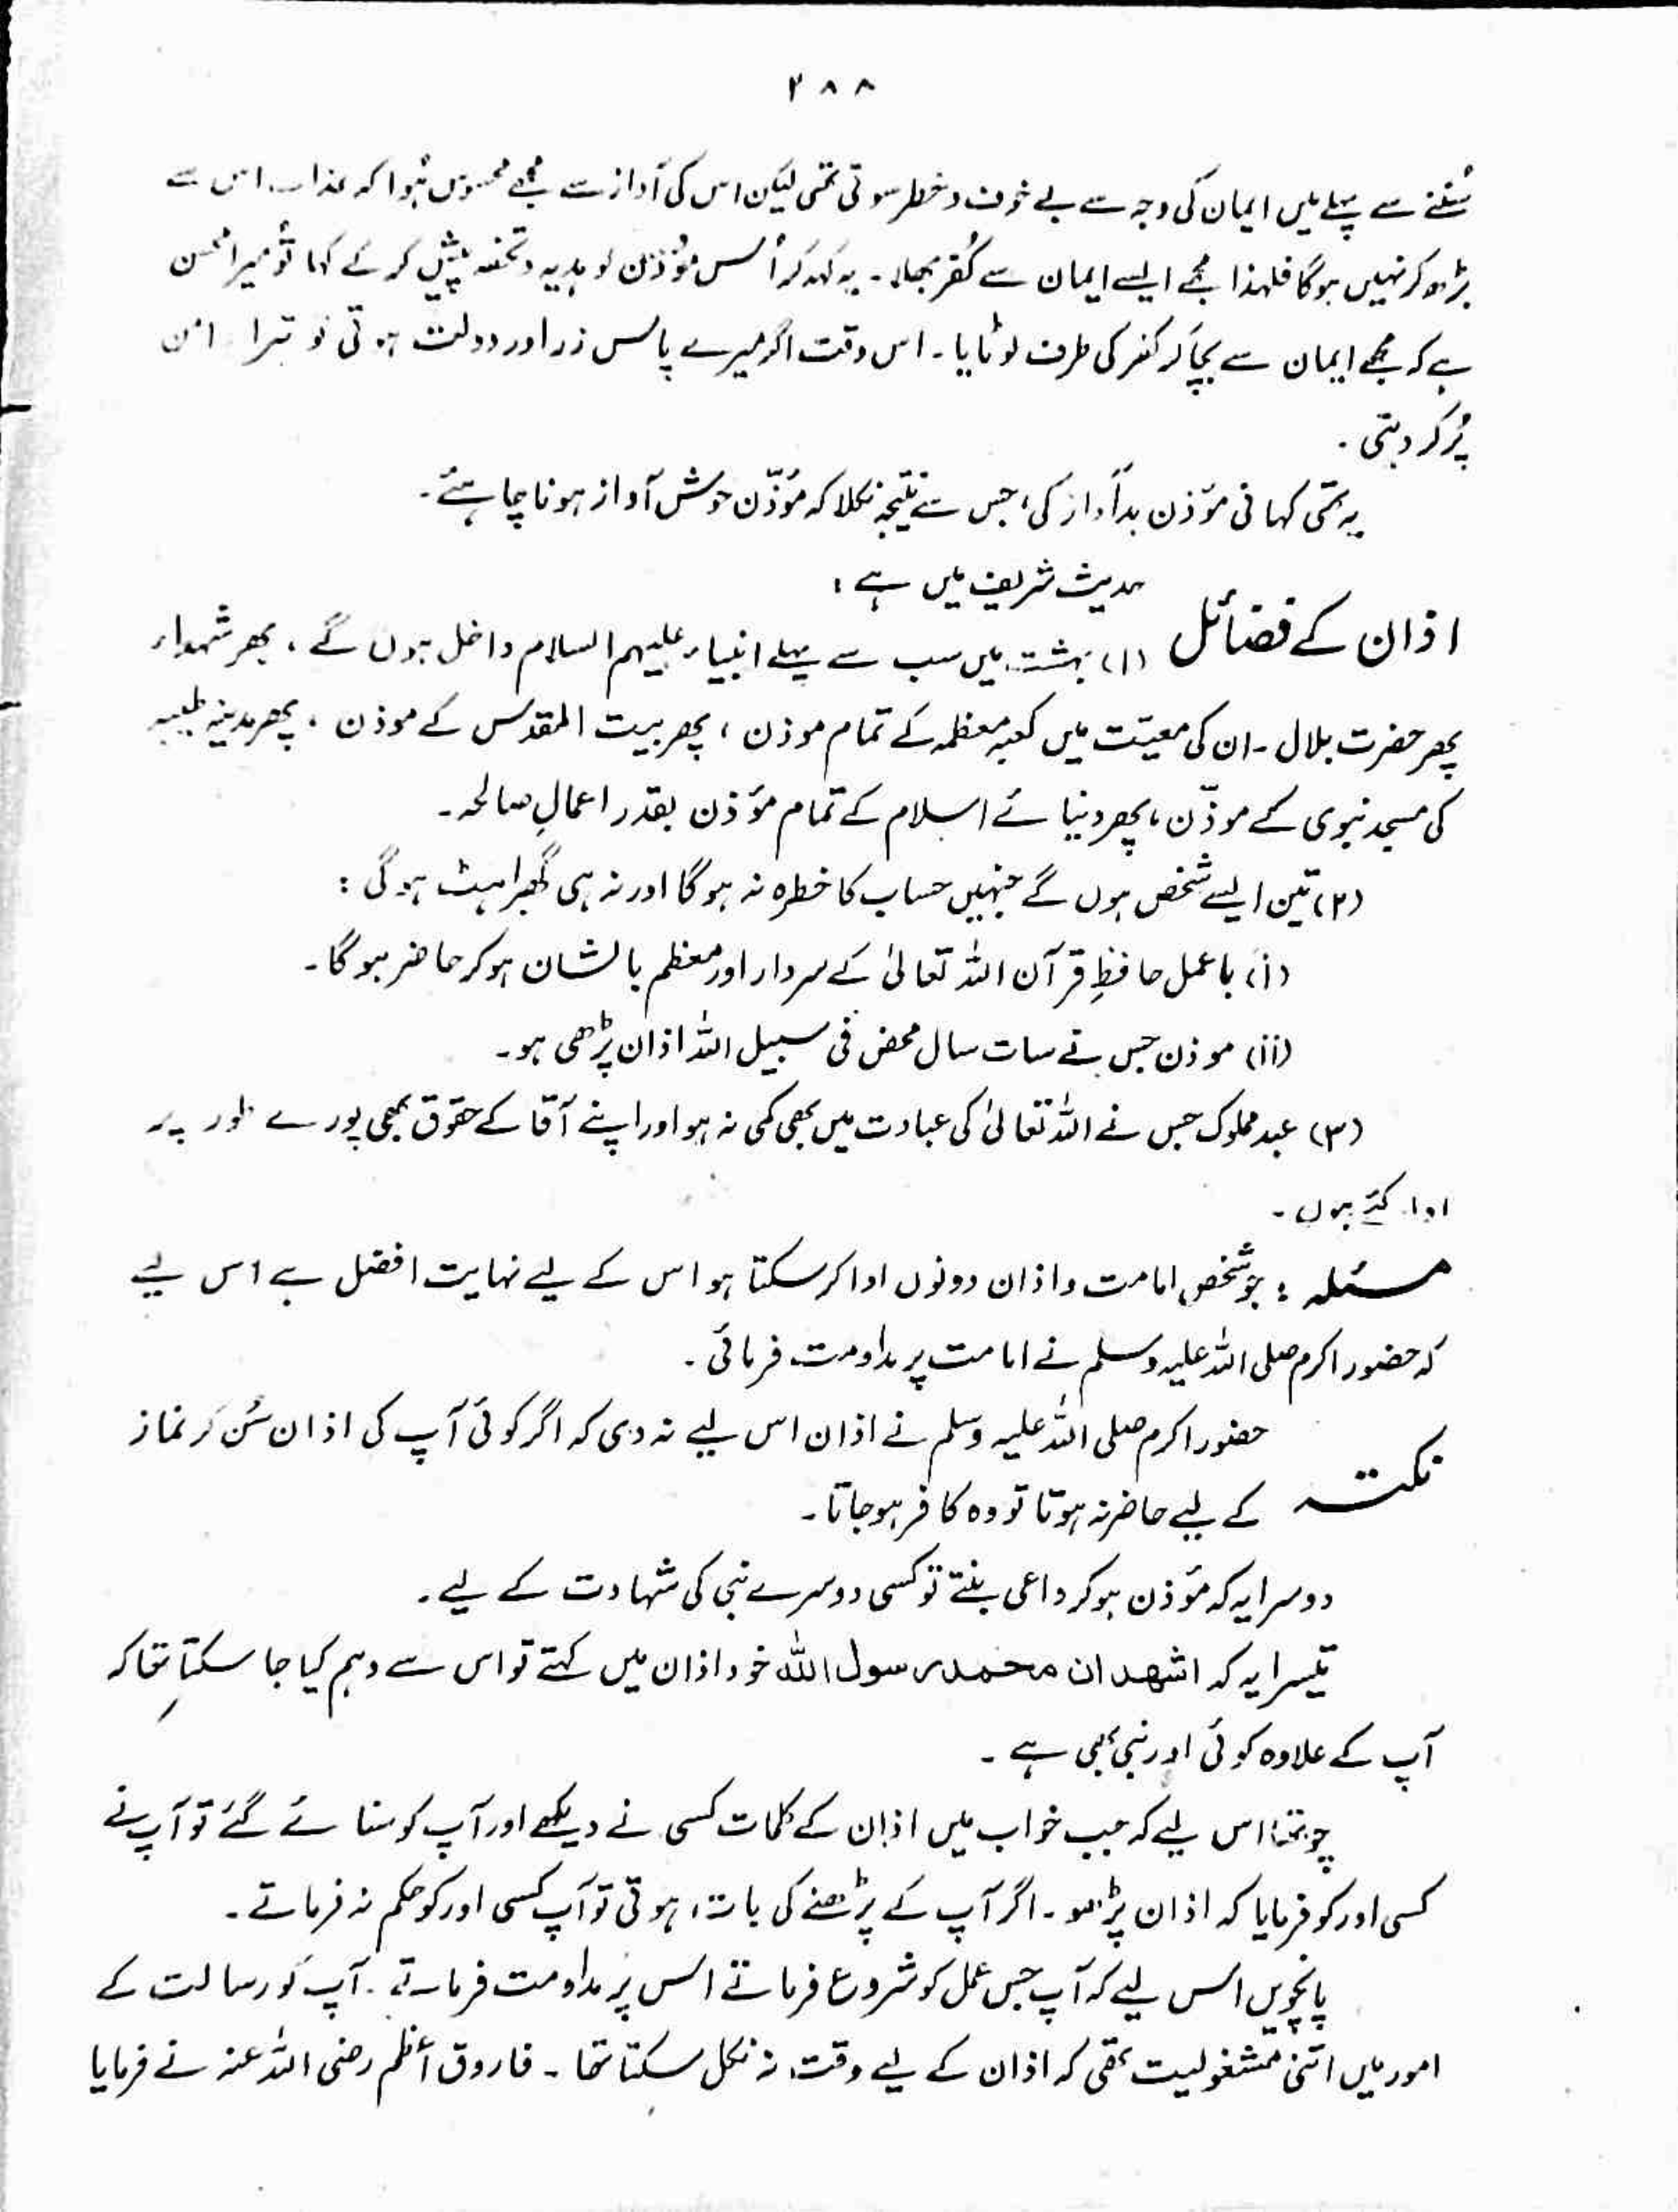 ۲۸۸
سُننے سے پہلے میں ایمان کی وجہ سے بے خوف و خطر سوتی تھی لیکن اس کی آواز سے مجھے محسوس ہُوا کہ عذاب اس سے
بڑھ کر نہیں ہوگا فلہٰذا مجھے ایسے ایمان سے کُفر بھلا۔ یہ کہہ کر اُس مؤذن کو ہدیہ و تحفہ پیش کر کے کہا تُو میرا محسن
ہے کہ مجھے ایمان سے بچا کر کفر کی طرف لوٹایا۔ اس وقت اگر میرے پاس زر اور دولت ہوتی تو تیرا
پُر کر دیتی۔
یہ تھی کہانی مؤذن بد آواز کی، جس سے نتیجہ نکلا کہ مؤذّن خوش آواز ہونا چاہئے۔
حدیث شریف میں ہے:
اذان کے فضائل (۱) بہشت میں سب سے پہلے انبیاء علیہم السلام داخل ہوں گے، پھر شہداء
پھر حضرت بلال۔ ان کی معیّت میں کعبہ معظمہ کے تمام موذن، پھر بیت المقدس کے موذن، پھر مدینہ طیبہ
کی مسجد نبوی کے موذّن، پھر دنیائے اسلام کے تمام مؤذن بقدر اعمالِ صالحہ۔
(۲) تین ایسے شخص ہوں گے جنہیں حساب کا خطرہ نہ ہوگا اور نہ ہی گھبراہٹ ہوگی:
(i) باعمل حافظِ قرآن اللہ تعالیٰ کے سردار اور معظم بالشان ہو کر حاضر ہوگا۔
(ii) موذن جس نے سات سال محض فی سبیل اللہ اذان پڑھی ہو۔
(۳) عبد مملوک جس نے اللہ تعالیٰ کی عبادت میں بھی کمی نہ ہو اور اپنے آقا کے حقوق بھی پورے طور پر
ادا کئے ہوں۔
مسئلہ: جو شخص امامت و اذان دونوں ادا کر سکتا ہو اس کے لیے نہایت افضل ہے اس لیے
کہ حضور اکرم صلی اللہ علیہ وسلم نے امامت پر مداومت فرمائی۔
نکتہ حضور اکرم صلی اللہ علیہ وسلم نے اذان اس لیے نہ دی کہ اگر کوئی آپ کی اذان سُن کر نماز
کے لیے حاضر نہ ہوتا تو وہ کافر ہو جاتا۔
دوسرا یہ کہ مؤذن ہو کر داعی بنتے تو کسی دوسرے نبی کی شہادت کے لیے۔
تیسرا یہ کہ اشھد ان محمد رسول اللہ خود اذان میں کہتے تو اس سے وہم کیا جا سکتا تھا کہ
آپ کے علاوہ کوئی اور نبی بھی ہے۔
چوتھا اس لیے کہ جب خواب میں اذان کے کلمات کسی نے دیکھے اور آپ کو سنائے گئے تو آپ نے
کسی اور کو فرمایا کہ اذان پڑھو۔ اگر آپ کے پڑھنے کی بات ہوتی تو آپ کسی اور کو حکم نہ فرماتے۔
پانچویں اس لیے کہ آپ جس عمل کو شروع فرماتے اس پر مداومت فرماتے۔ آپ کو رسالت کے
امور میں اتنی مشغولیت تھی کہ اذان کے لیے وقت نہ نکل سکتا تھا۔ فاروق اعظم رضی اللہ عنہ نے فرمایا